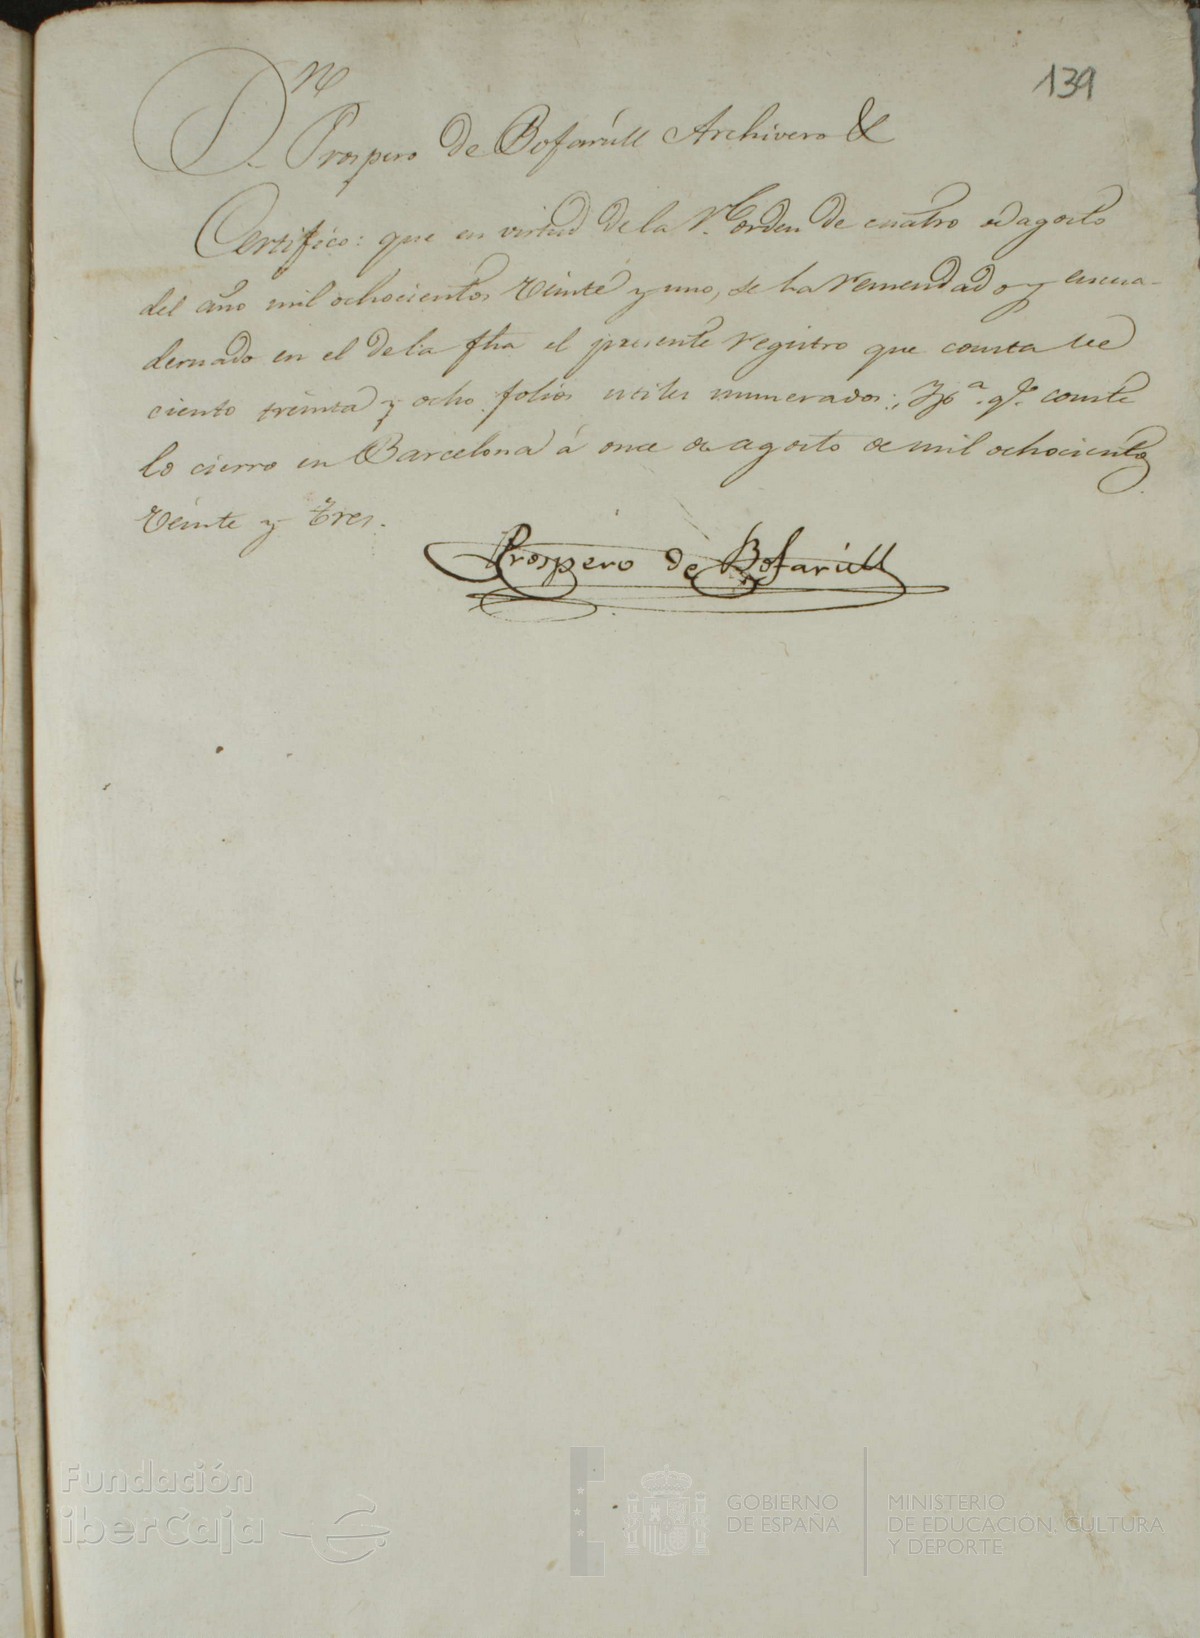 139
Dn
Prospero de Bofarull Archivero &
Certifico: que en virtud de la Rl. orden de cuatro de agosto
del año mil ochocientos veinte y uno, se ha remendado y encua-
dernado en el de la fha el presente registro que consta de
ciento treinta y ocho folios utiles numerados: Y pa. qe. conste
lo cierro en Barcelona á once de agosto de mil ochocientos
veinte y tres.
Prospero de Bofarull
Fundación
iberCaja
GOBIERNO
DE ESPAÑA
MINISTERIO
DE EDUCACIÓN, CULTURA
Y DEPORTE